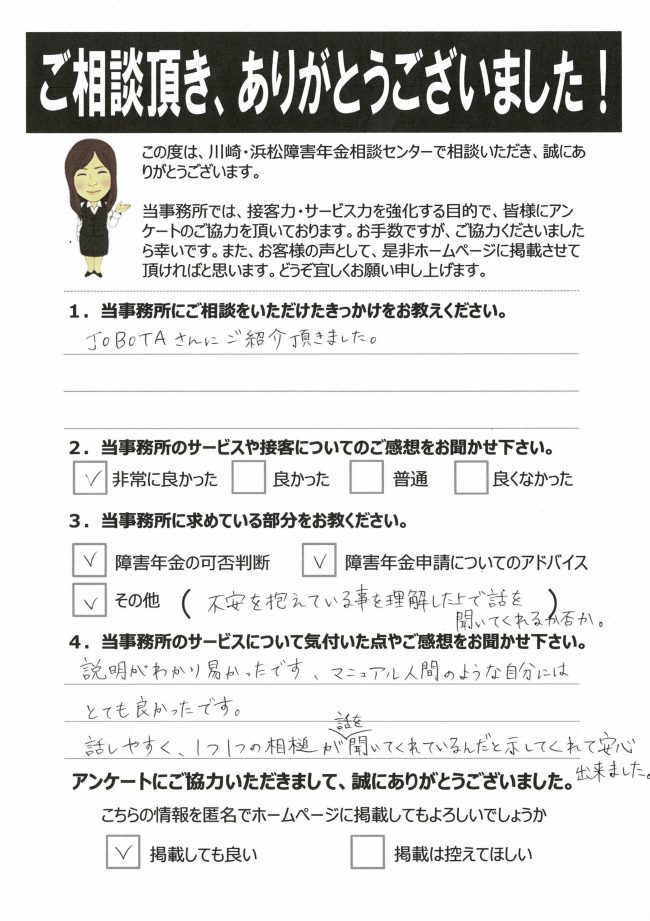 ご相談頂き、ありがとうございました！
この度は、川崎・浜松障害年金相談センターで相談いただき、誠にあ
りがとうございます。
当事務所では、接客力・サービス力を強化する目的で、皆様にアン
ケートのご協力を頂いております。お手数ですが、ご協力くださいました
ら幸いです。また、お客様の声として、是非ホームページに掲載させて
頂ければと思います。どうぞ宜しくお願い申し上げます。
１．当事務所にご相談をいただけたきっかけをお教えください。
JOBOTAさんにご紹介頂きました。
２．当事務所のサービスや接客についてのご感想をお聞かせ下さい。
✓ 非常に良かった 良かった 普通 良くなかった
３．当事務所に求めている部分をお教ください。
✓ 障害年金の可否判断 ✓ 障害年金申請についてのアドバイス
✓ その他 （ 不安を抱えている事を理解した上で話を ）
聞いてくれるか否か。
４．当事務所のサービスについて気付いた点やご感想をお聞かせ下さい。
説明がわかり易かったです、マニュアル人間のような自分には
とても良かったです。
話を
話しやすく、1つ1つの相槌が聞いてくれているんだと示してくれて安心
出来ました。
アンケートにご協力いただきまして、誠にありがとうございました。
こちらの情報を匿名でホームページに掲載してもよろしいでしょうか
✓ 掲載しても良い 掲載は控えてほしい